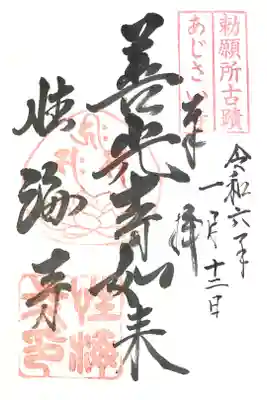 勅願所古蹟
あじさい寺
奉拝
令和六年
一月十二日
善光寺如来
性海寺